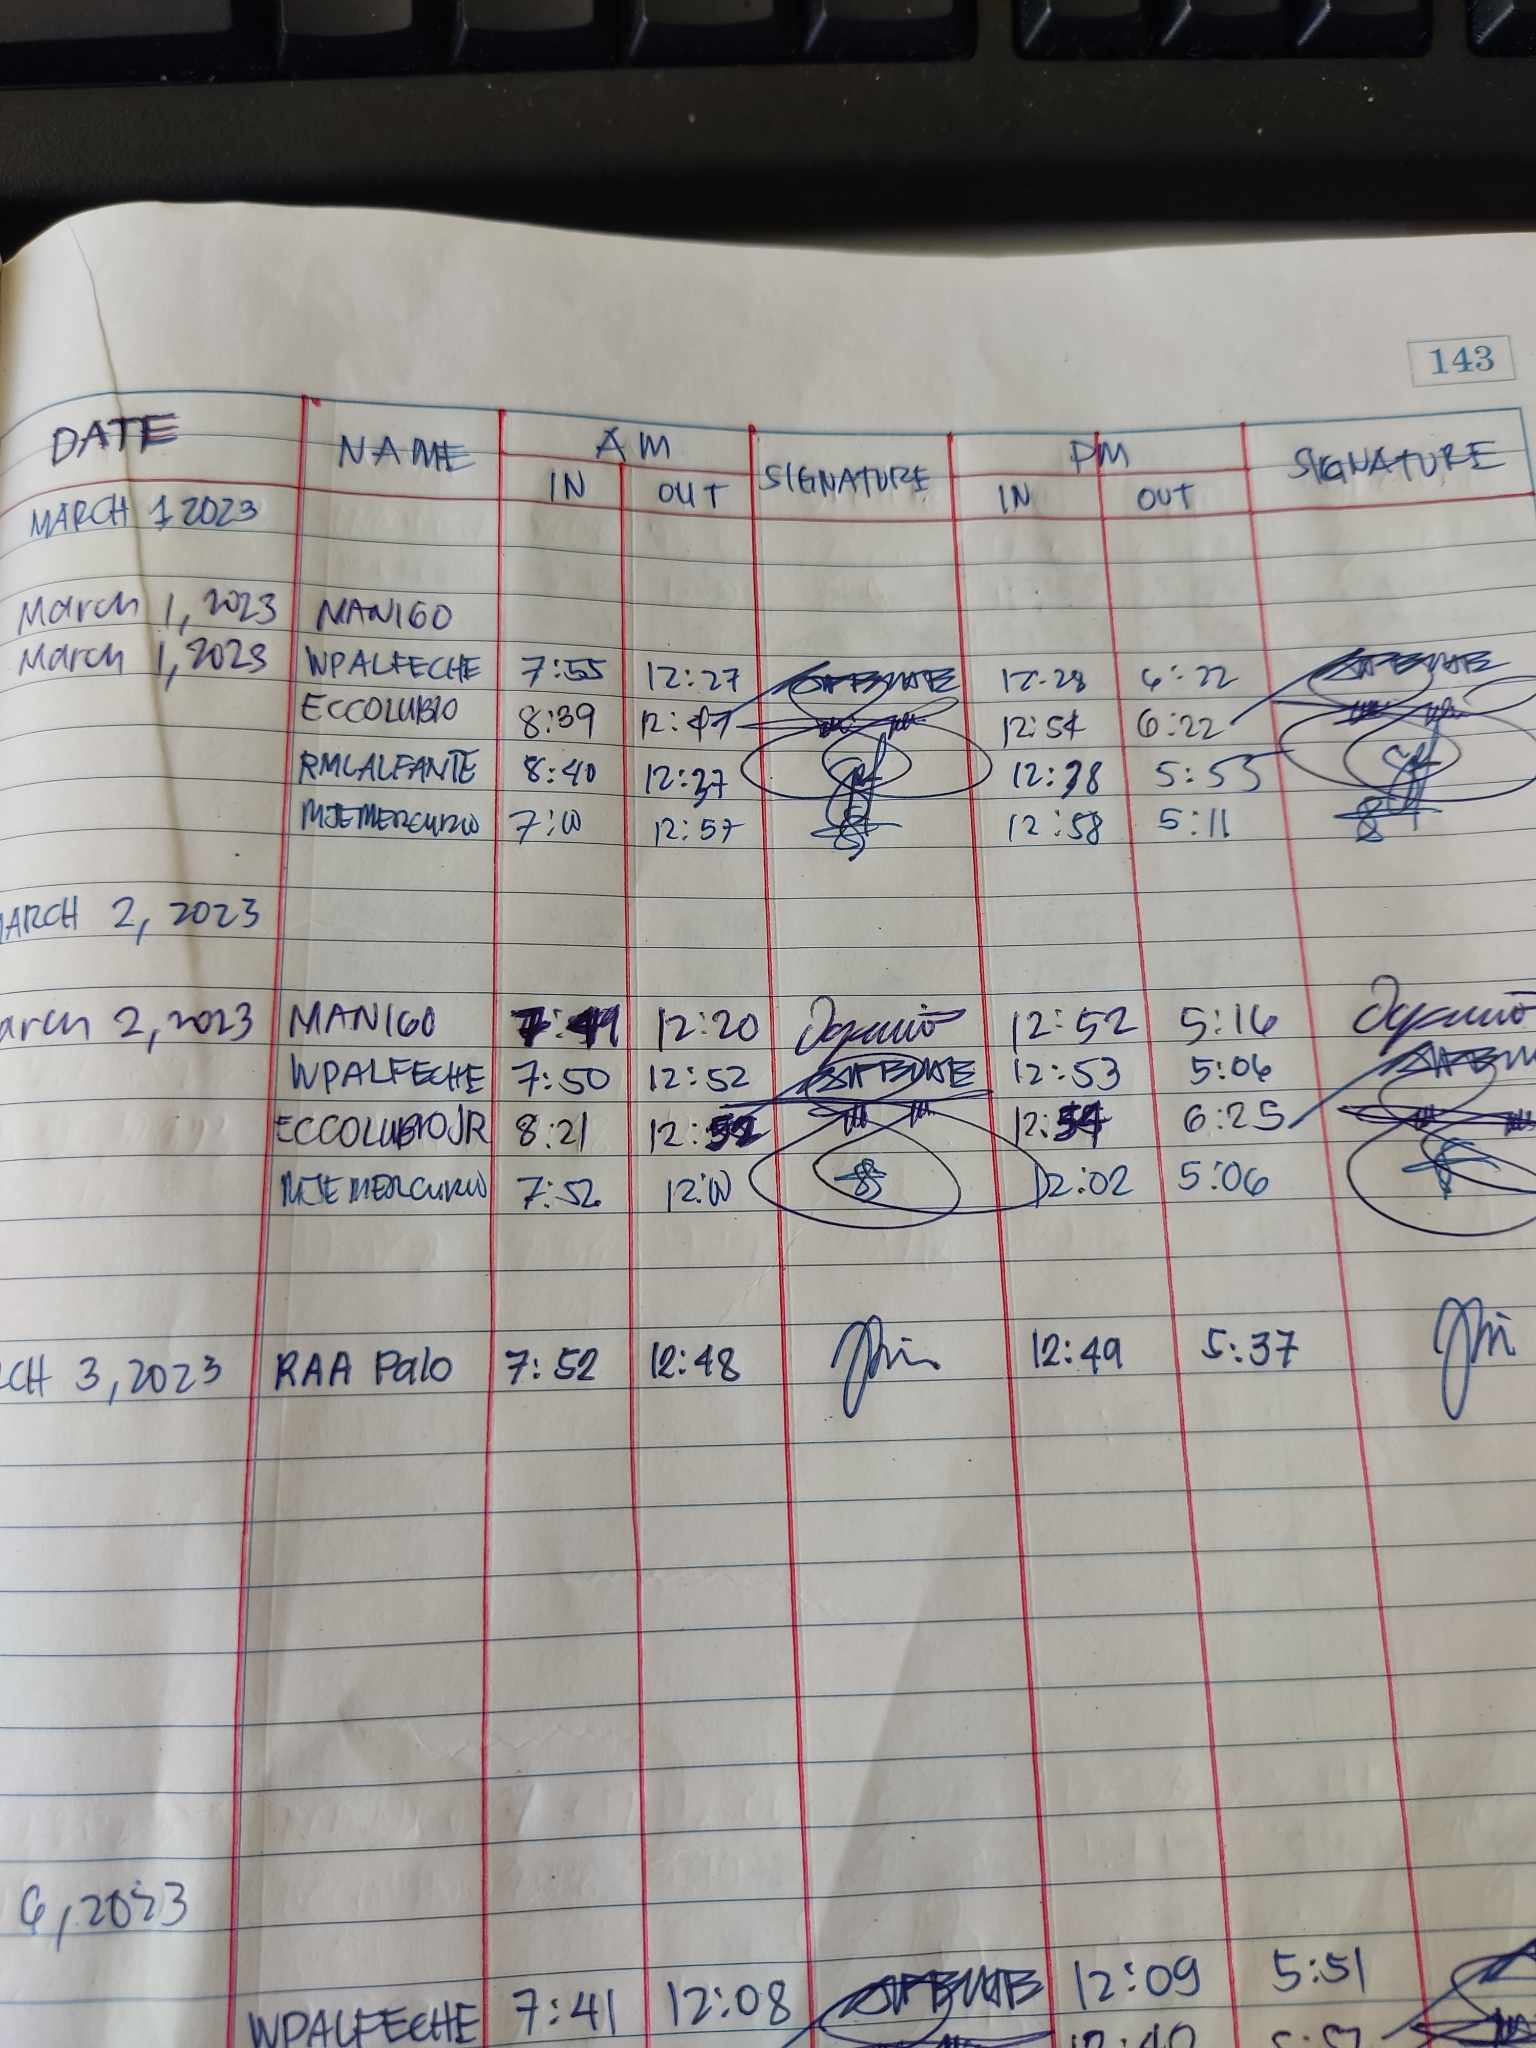 143
DATE NAME AM SIGNATURE PM SIGNATURE
IN OUT IN OUT
MARCH 1 2023
March 1, 2023 MANIGO
March 1, 2023 WPALFECHE 7:55 12:27 12:28 6:22
ECCOLUBIO 8:39 12:54 6:22
RMCALFANTE 8:40 12:37 12:38 5:53
MJEMERCURIO 7:10 12:57 12:58 5:11
MARCH 2, 2023
arch 2, 2023 MANIGO 12:20 12:52 5:16
WPALFECHE 7:50 12:52 12:53 5:06
ECCOLUBIOJR 8:21 12:52 12:54 6:25
MJEMERCURIO 7:52 12:02 5:06
RCH 3, 2023 RAA Palo 7:52 12:48 12:49 5:37
6, 2023
WPALFECHE 7:41 12:08 12:09 5:51
12:40